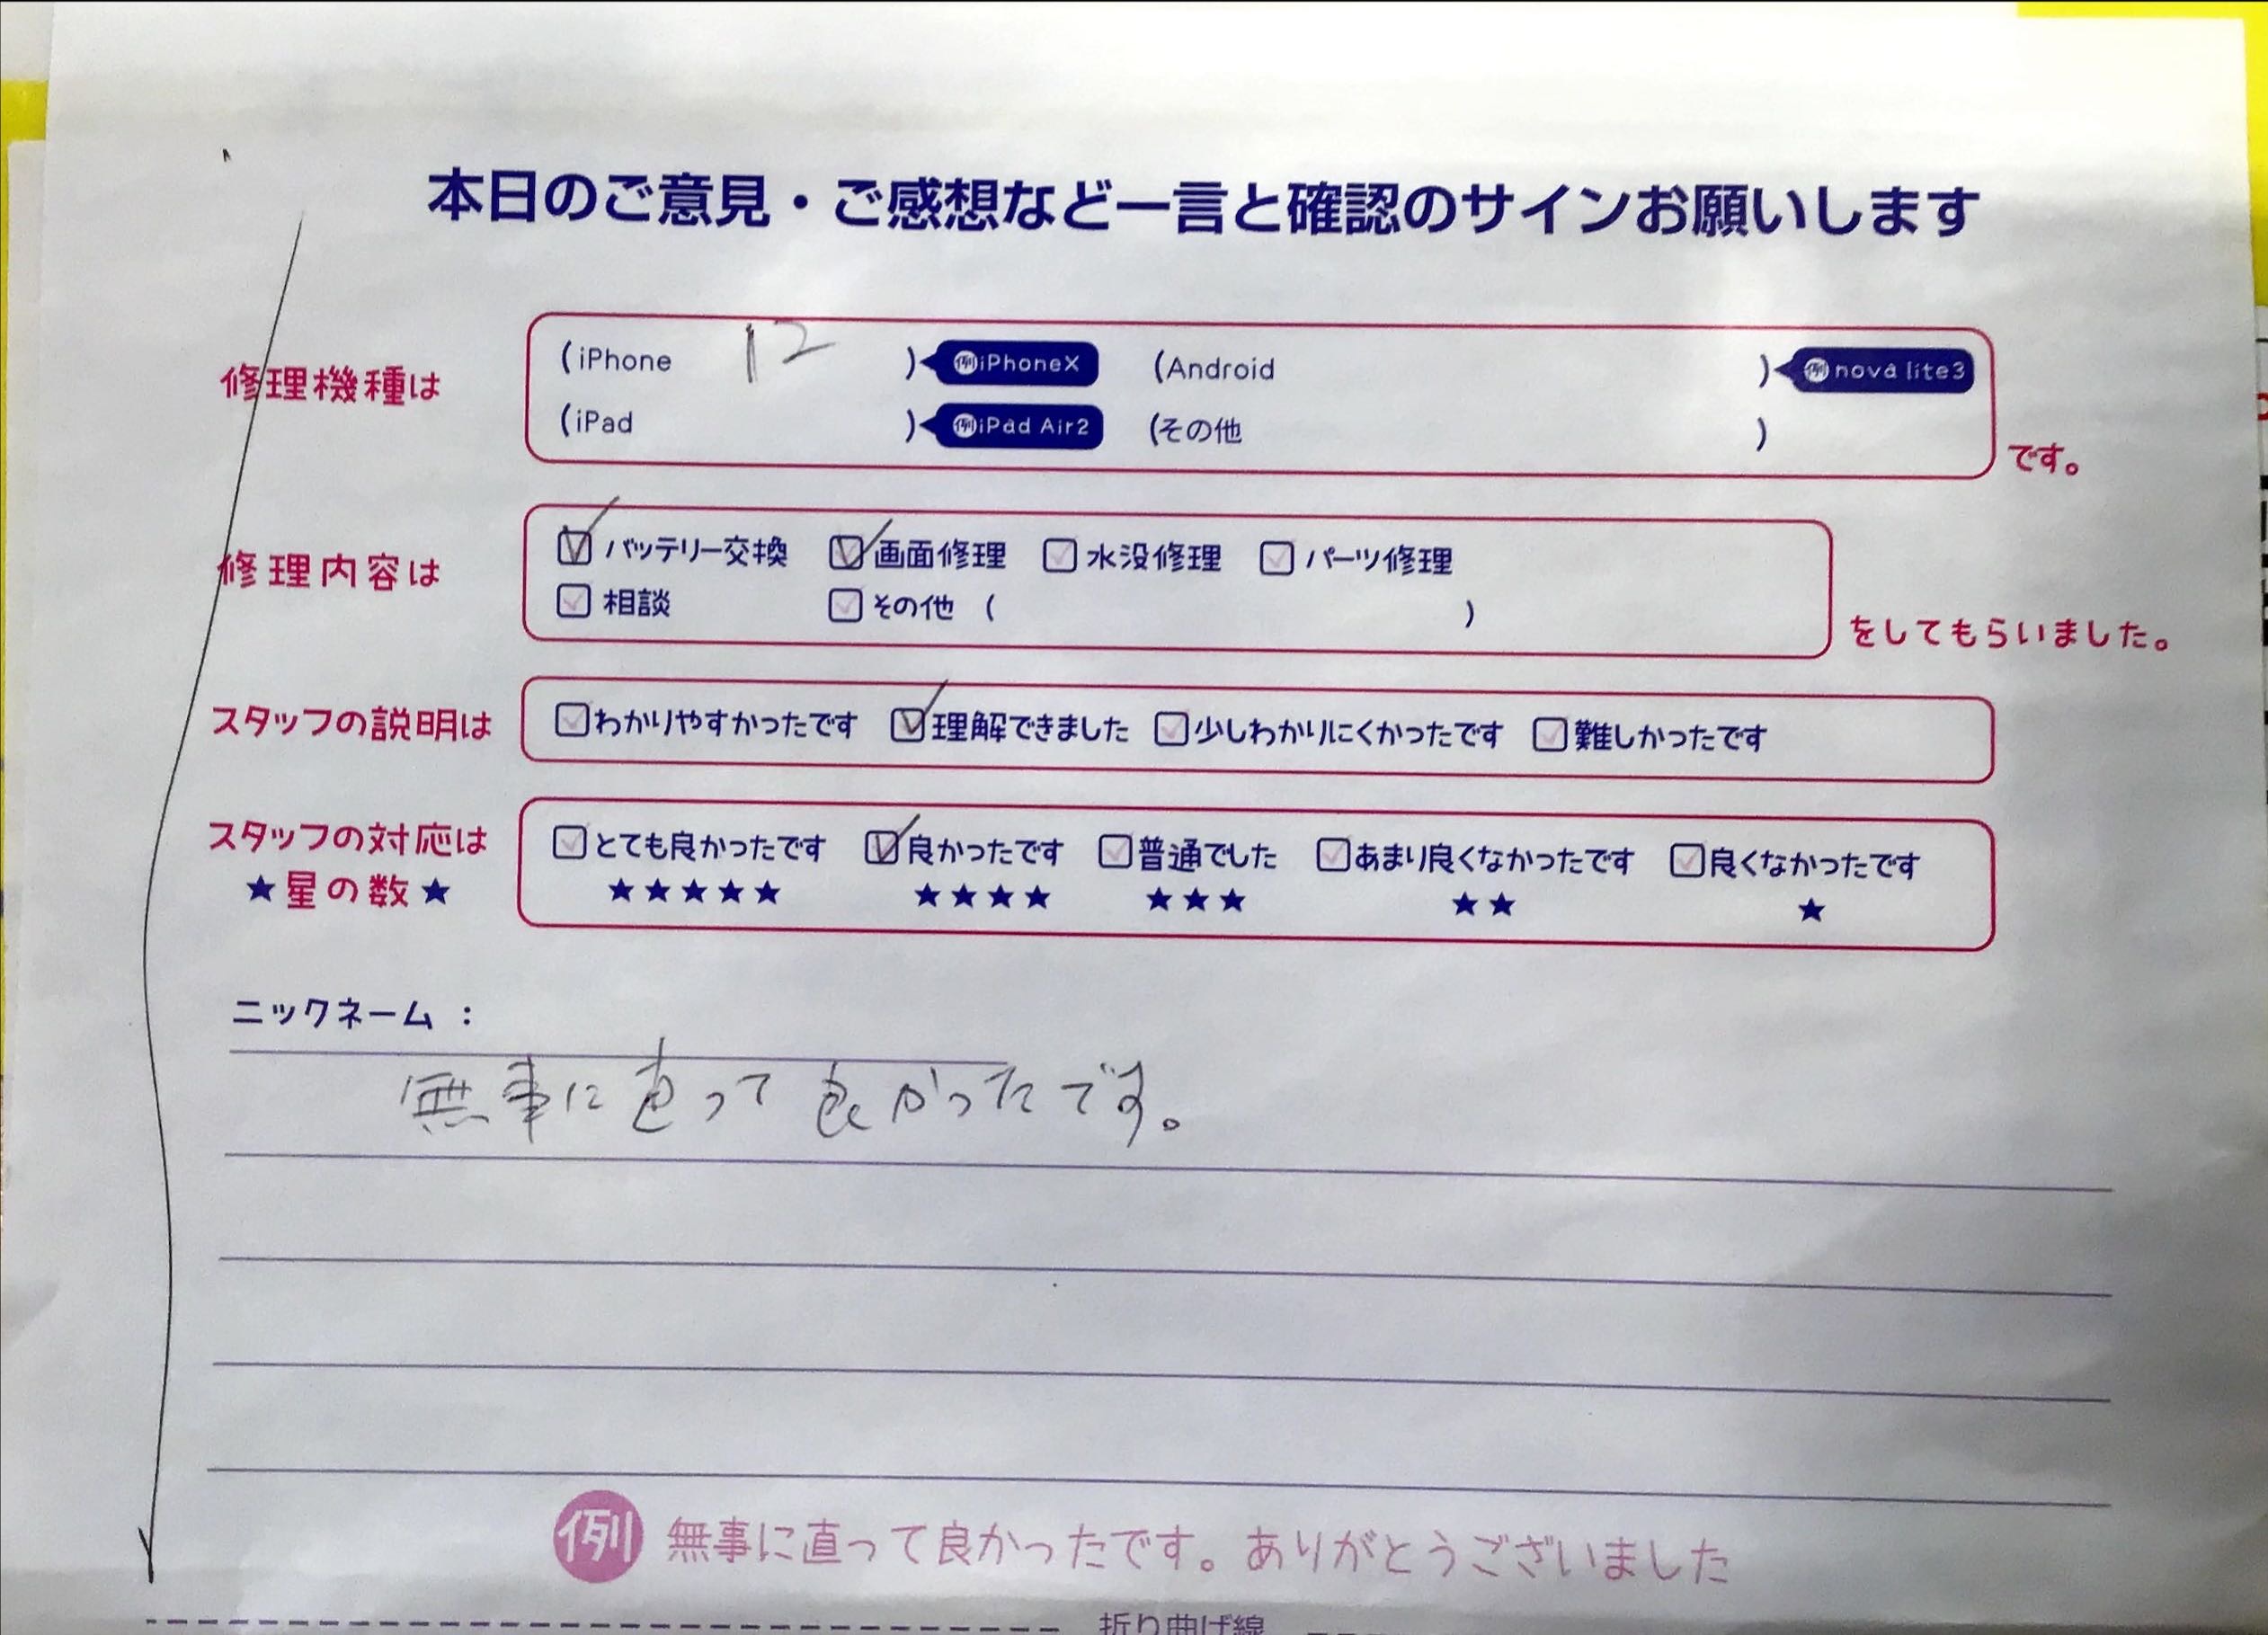 本日のご意見・ご感想など一言と確認のサインお願いします
修理機種は
(iPhone 12 ) 例iPhoneX (Android ) 例nova lite3
(iPad ) 例iPad Air2 (その他 )
です。
修理内容は
バッテリー交換 画面修理 水没修理 パーツ修理
相談 その他 ( )
をしてもらいました。
スタッフの説明は
わかりやすかったです 理解できました 少しわかりにくかったです 難しかったです
スタッフの対応は
★星の数★
とても良かったです 良かったです 普通でした あまり良くなかったです 良くなかったです
★★★★★ ★★★★ ★★★ ★★ ★
ニックネーム：
無事に直って良かったです。
例 無事に直って良かったです。ありがとうございました
折り曲げ線